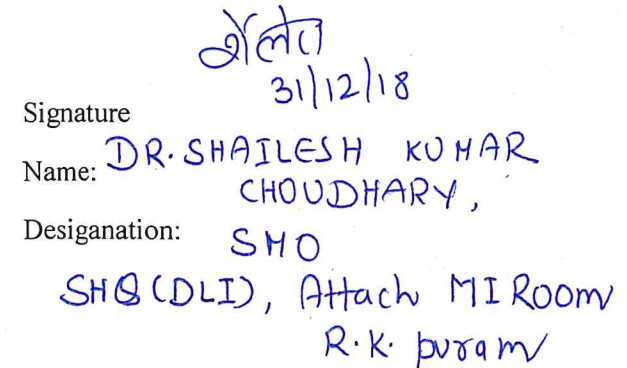 शैलेश
31/12/18
Signature
Name: DR. SHAILESH KUMAR
CHOUDHARY,
Desiganation: SMO
SHQ (DLI), Attach MI Room
R.K. puram